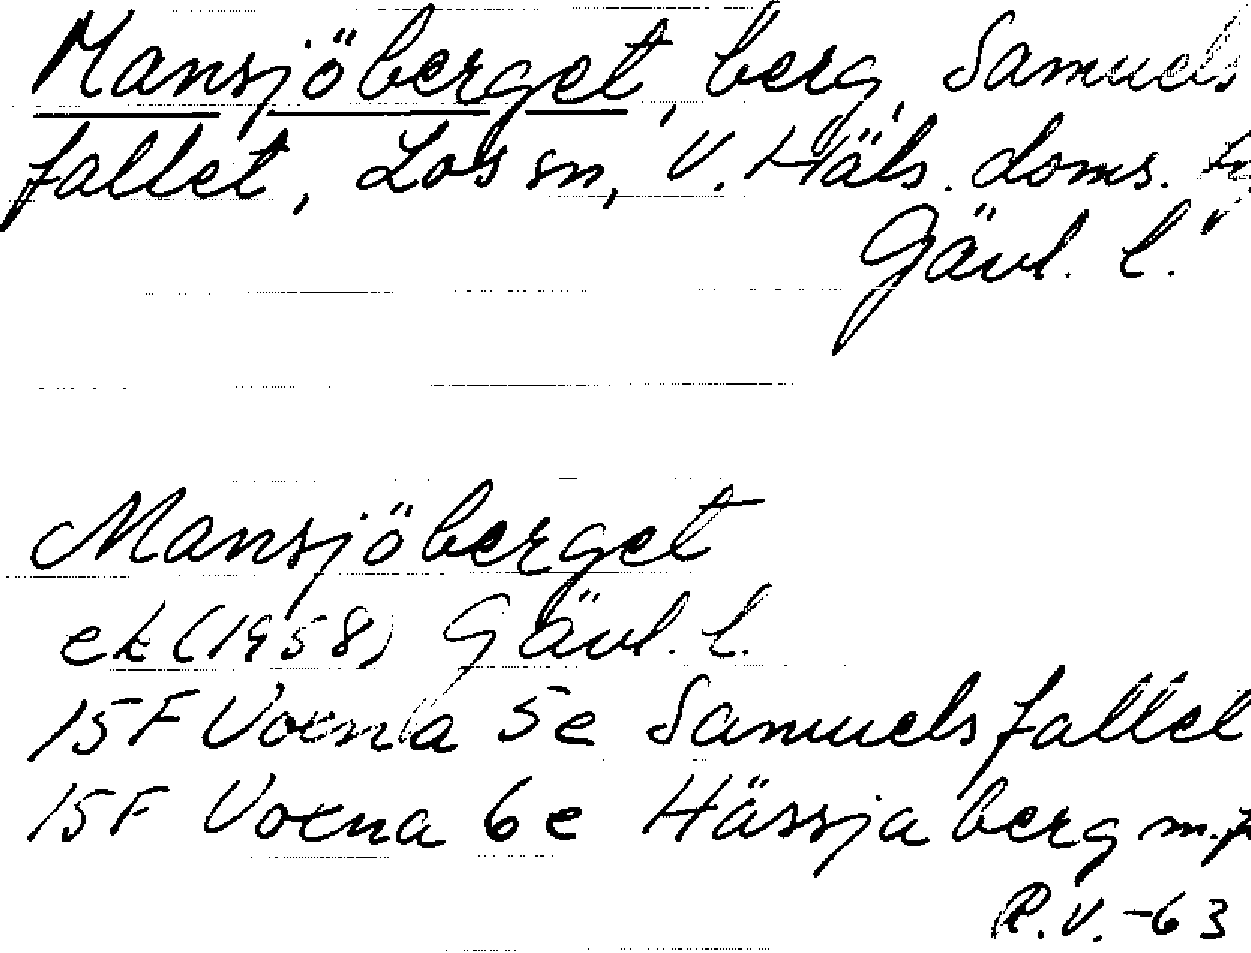 Mansjöberget, berg, Samuels
fallet, Los sn, V. Häls. doms.
Gävl. l.
Mansjöberget
ek (1958) Gävl. l.
15F Voxna 5e Samuelsfallet
15F Voxna 6e Hässjaberg m.fl
R.V. -63